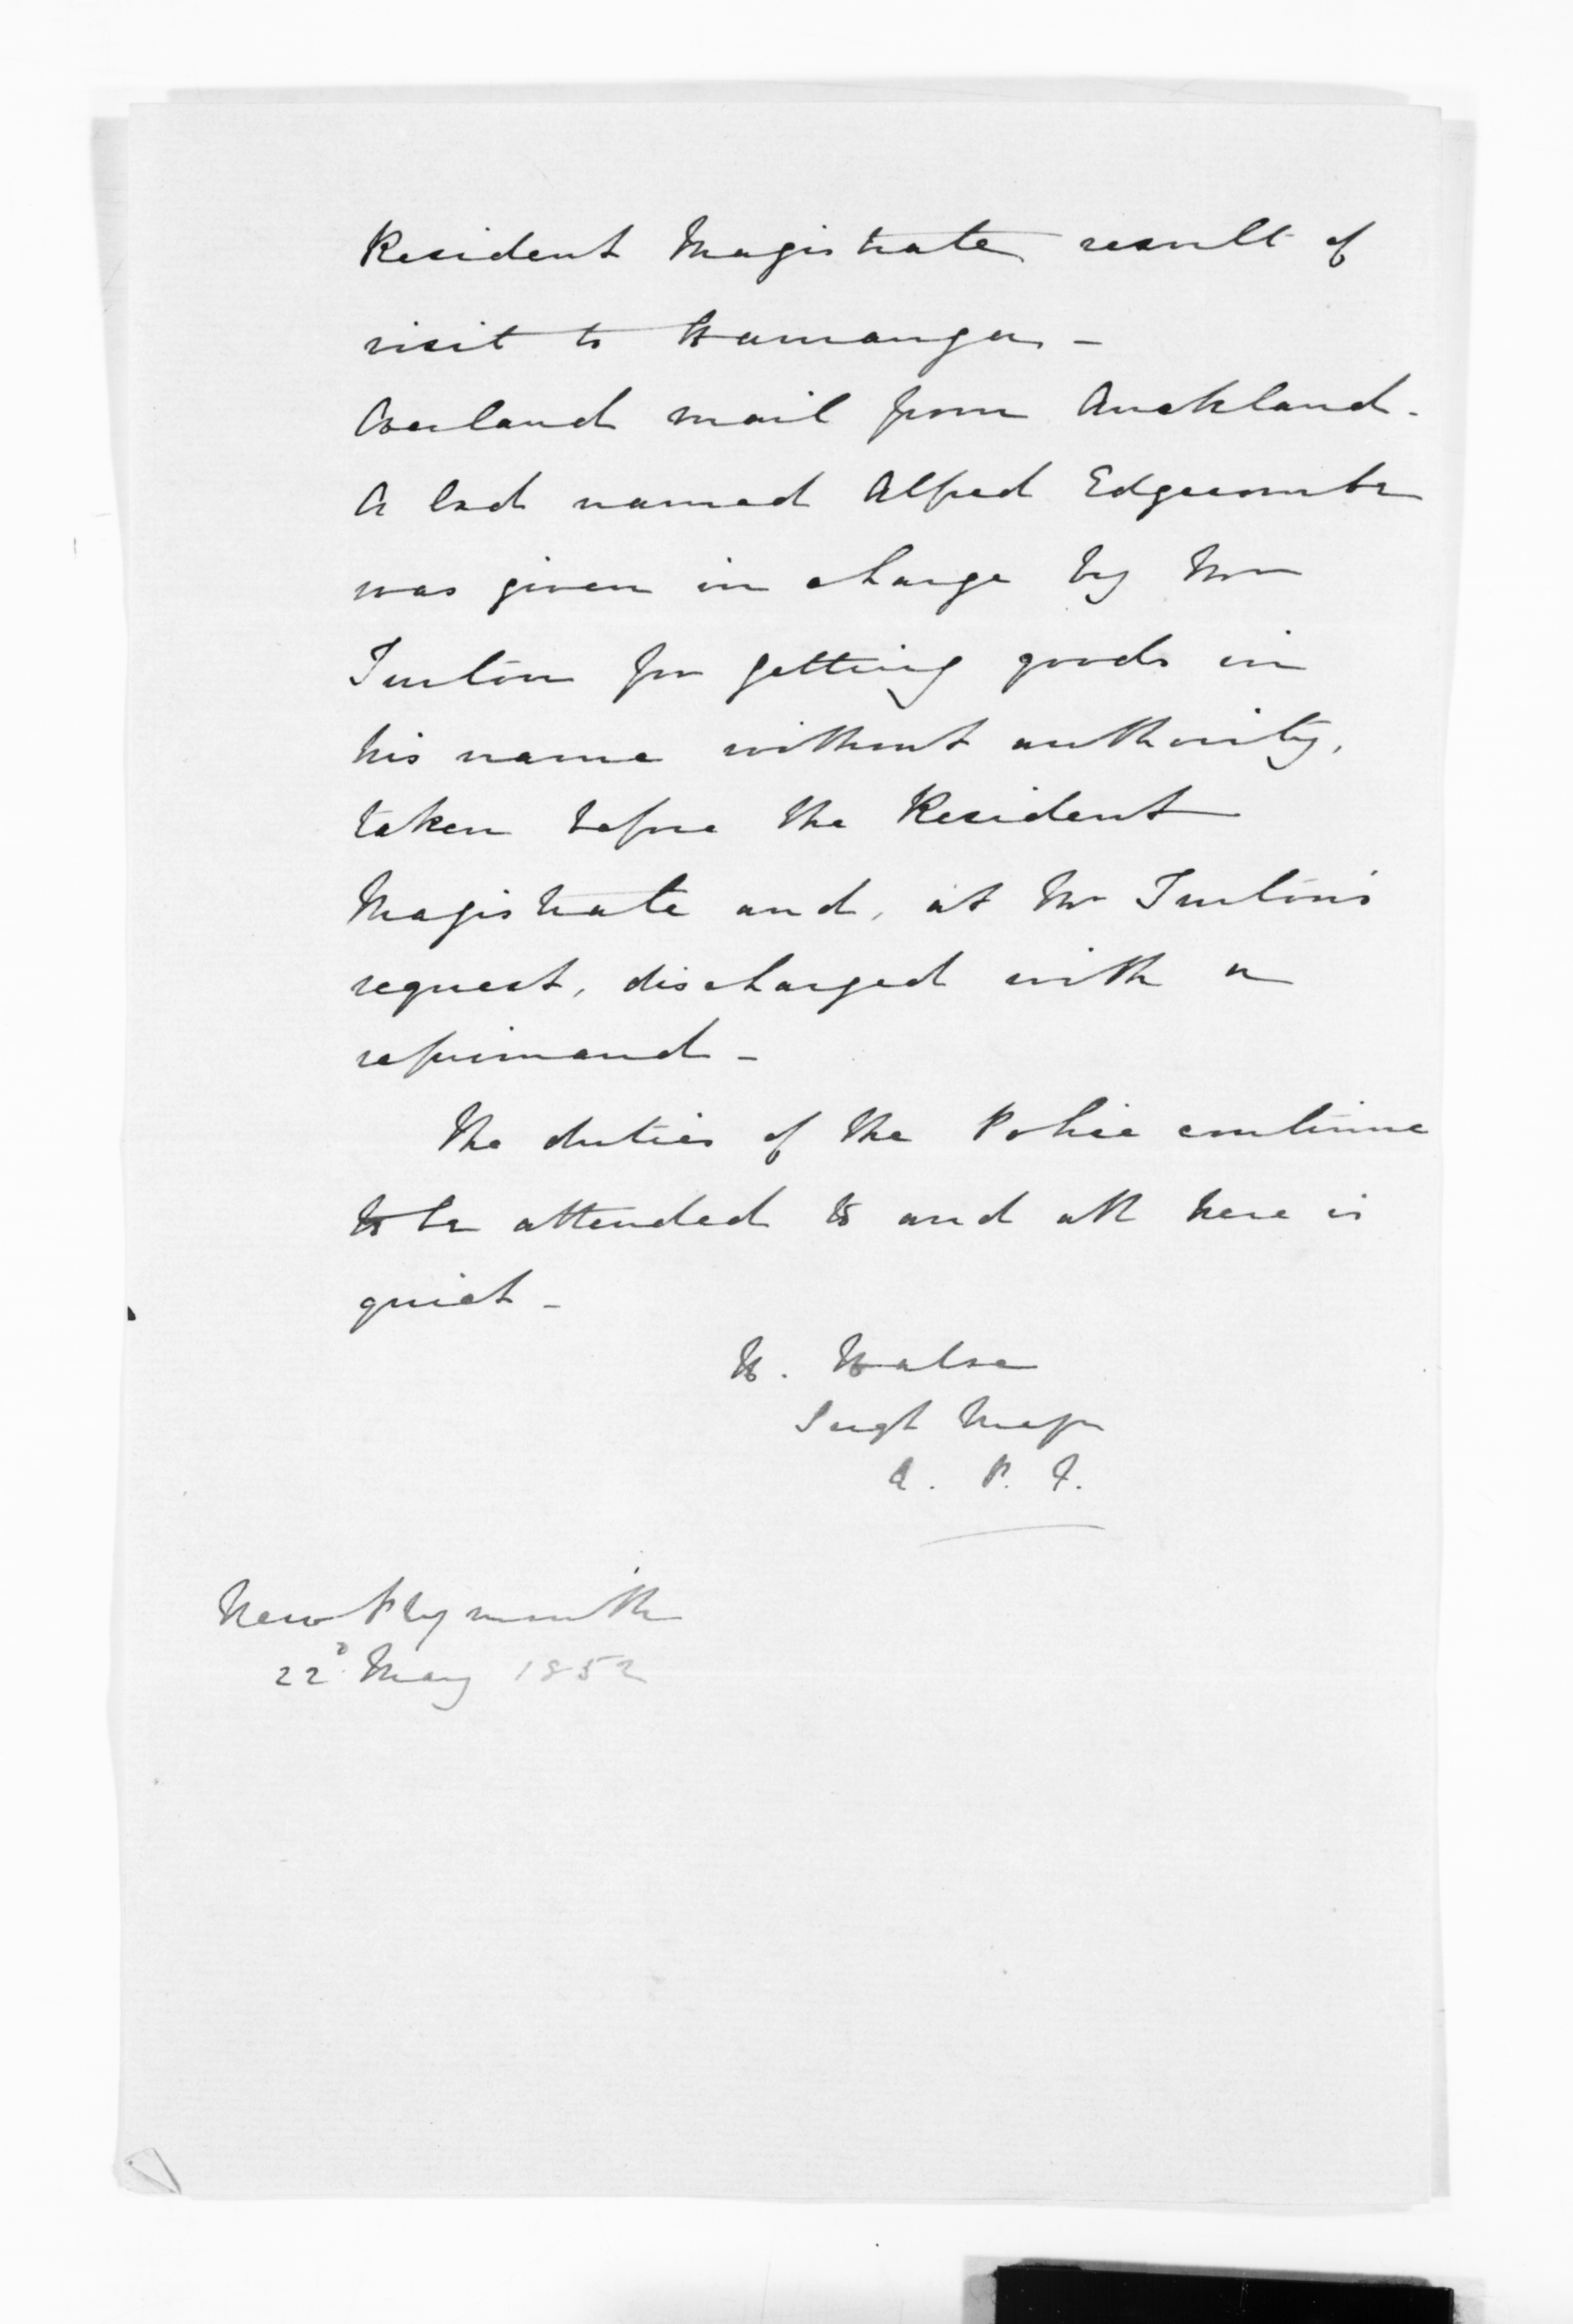 Resident Magistrate result of
visit to Hamanga -
Overland mail from Auckland.
A lad named Alfred Edgecombe
was given in charge by Mr
Turton for getting goods in
his name without authority,
taken before the Resident
Magistrate and, at Mr Turton's
request, discharged with a
reprimand -
The duties of the Police continue
to be attended to and all here is
quiet -
H. Halse
Sergt Major
A. P. F.
New Plymouth
22d May 1852